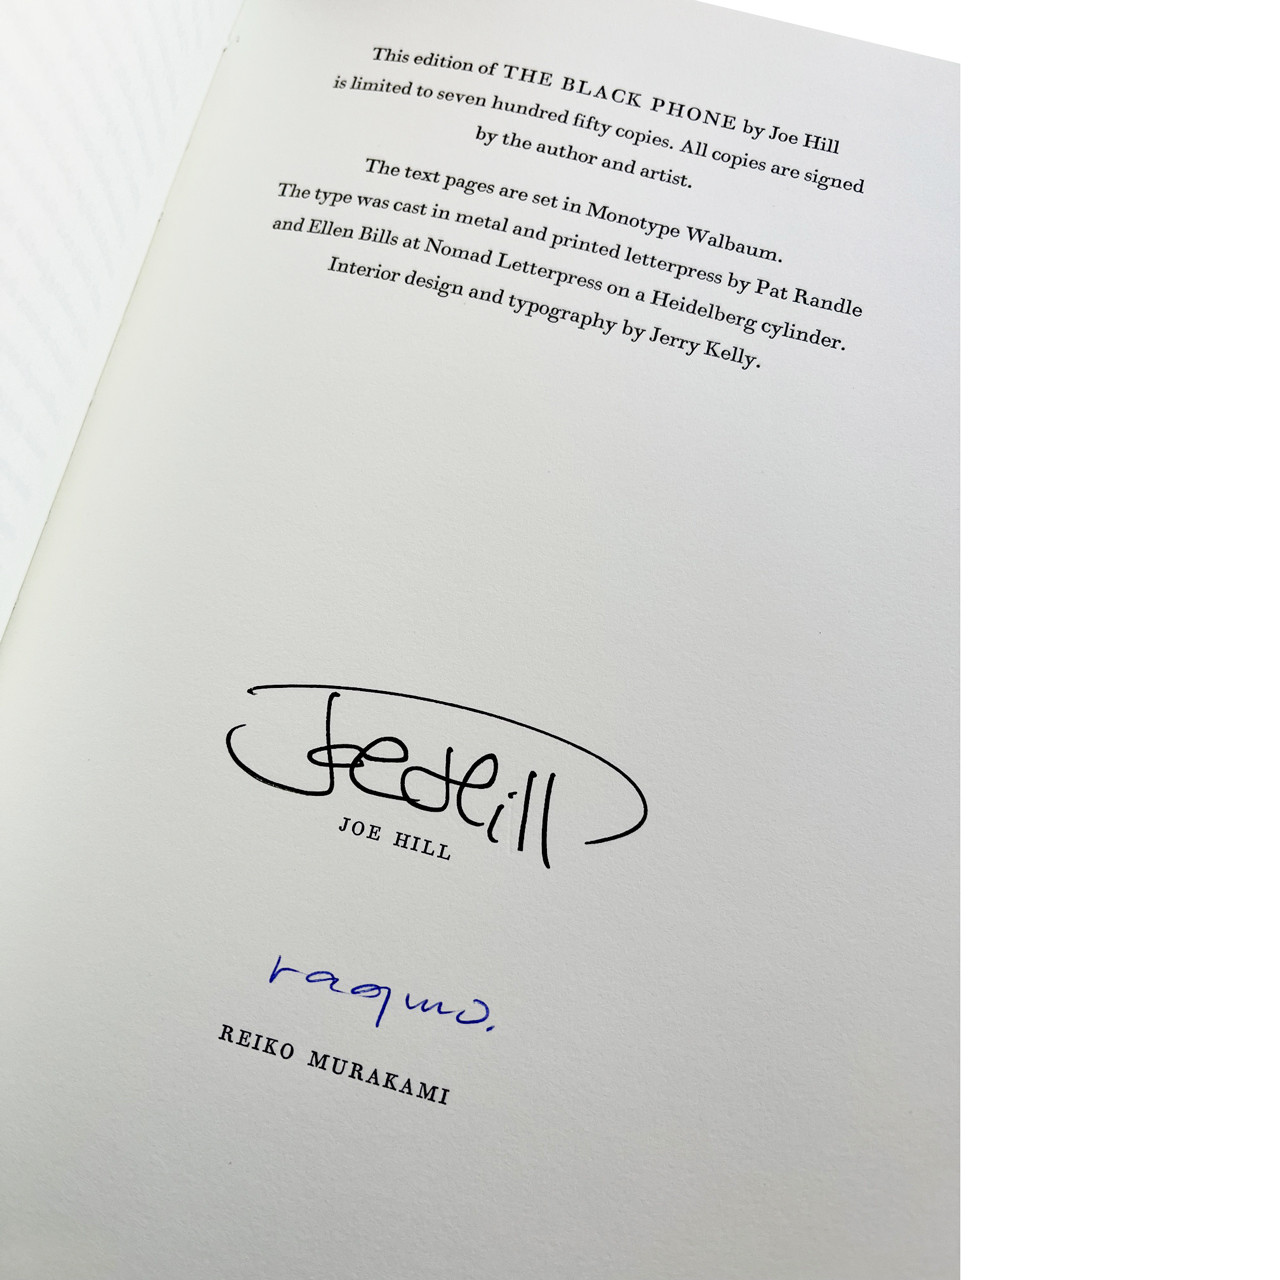 This edition of THE BLACK PHONE by Joe Hill
is limited to seven hundred fifty copies. All copies are signed
by the author and artist.
The text pages are set in Monotype Walbaum.
The type was cast in metal and printed letterpress by Pat Randle
and Ellen Bills at Nomad Letterpress on a Heidelberg cylinder.
Interior design and typography by Jerry Kelly.
Joe Hill
JOE HILL
raqmo.
REIKO MURAKAMI